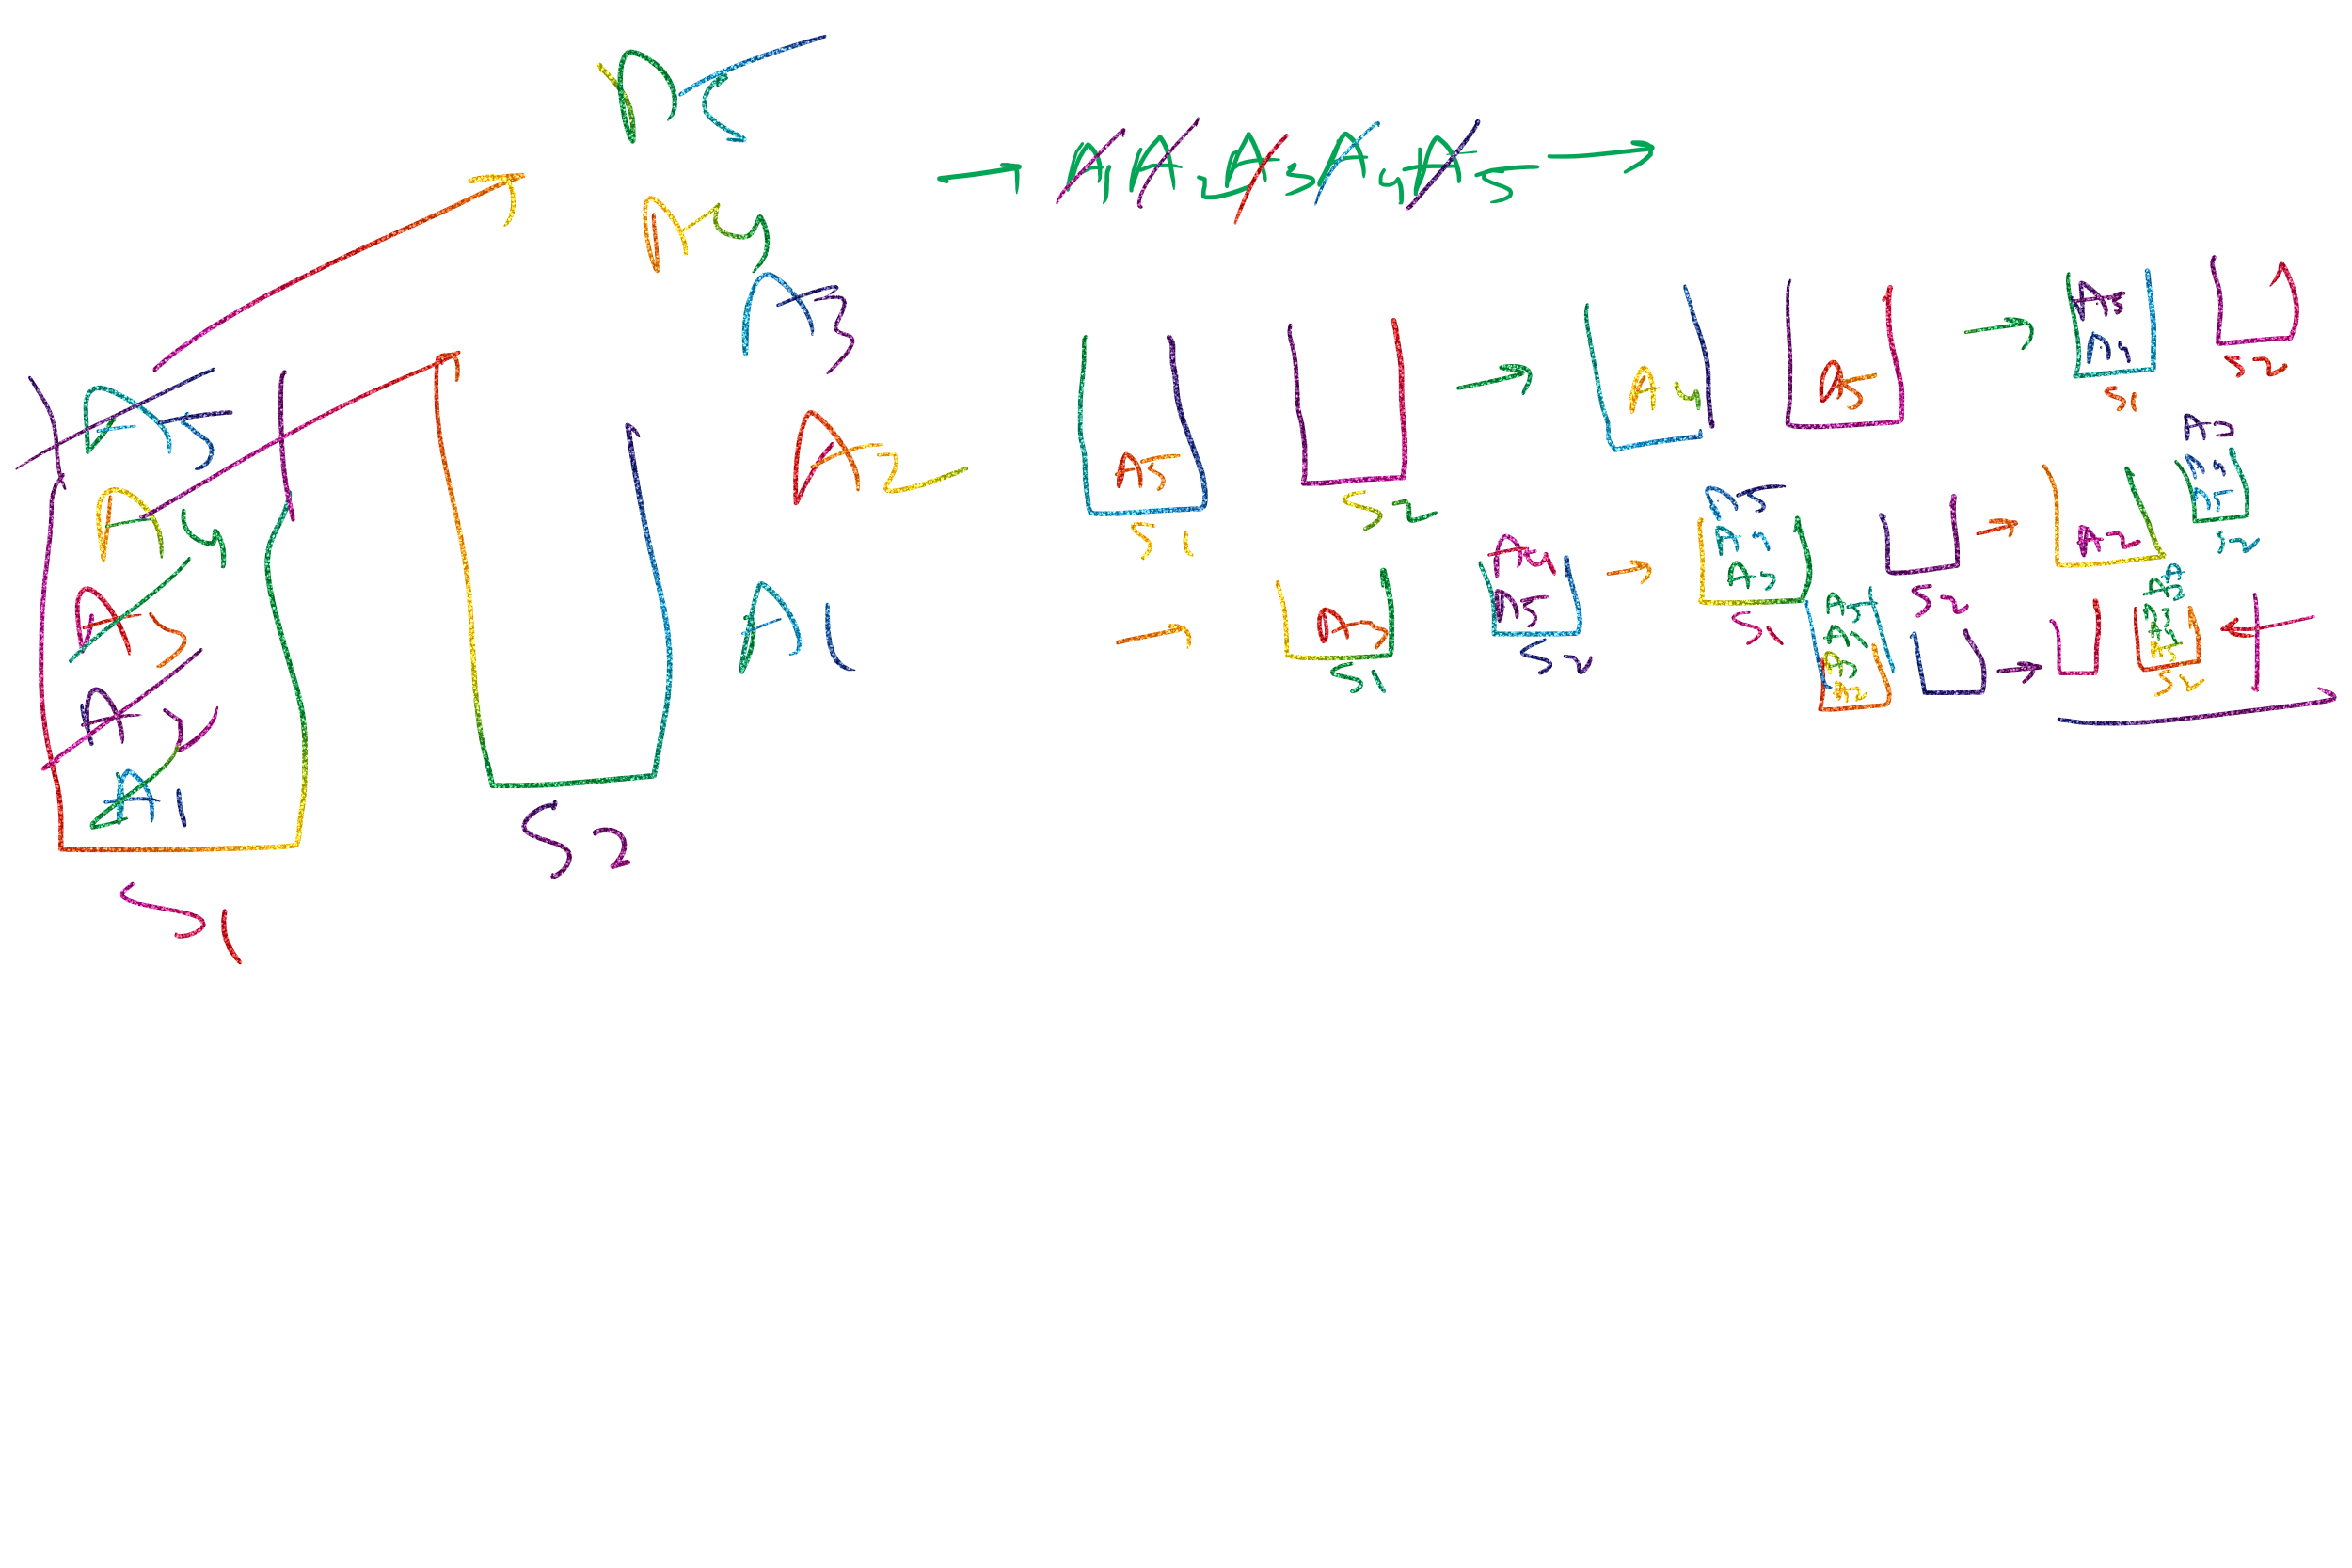 A5
A4
A3
A2
A1
S1
S2
A5
A4
A3
A2
A1
A1 A2 A3 A4 A5
A5
S1
S2
A4
A5
A5
A4
S1
S2
A3
S1
A4
A5
S2
A5
A4
A3
S1
S2
A2
A3
A4
A5
S2
A5
A4
A3
A2
A3
A4
A5
S2